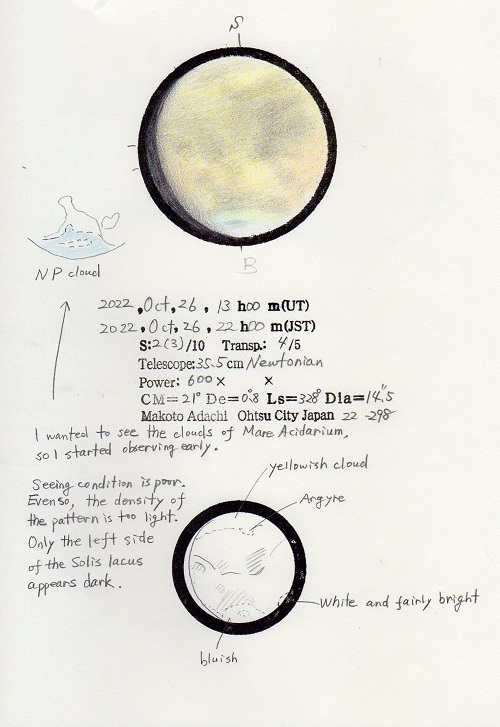 S
NP cloud
B
2022, Oct, 26, 13 h00 m(UT)
2022, Oct, 26, 22 h00 m(JST)
S:2(3)/10 Transp.: 4/5
Telescope:35.5cm Newtonian
Power: 600× ×
CM=21° De=0.°8 Ls=328° Dia=14."5
Makoto Adachi Ohtsu City Japan 22-298
I wanted to see the clouds of Mare Acidarium,
so I started observing early.
Seeing condition is poor.
Even so, the density of
the pattern is too light.
Only the left side
of the Solis lacus
appears dark.
yellowish cloud
Argyre
White and fairly bright
bluish